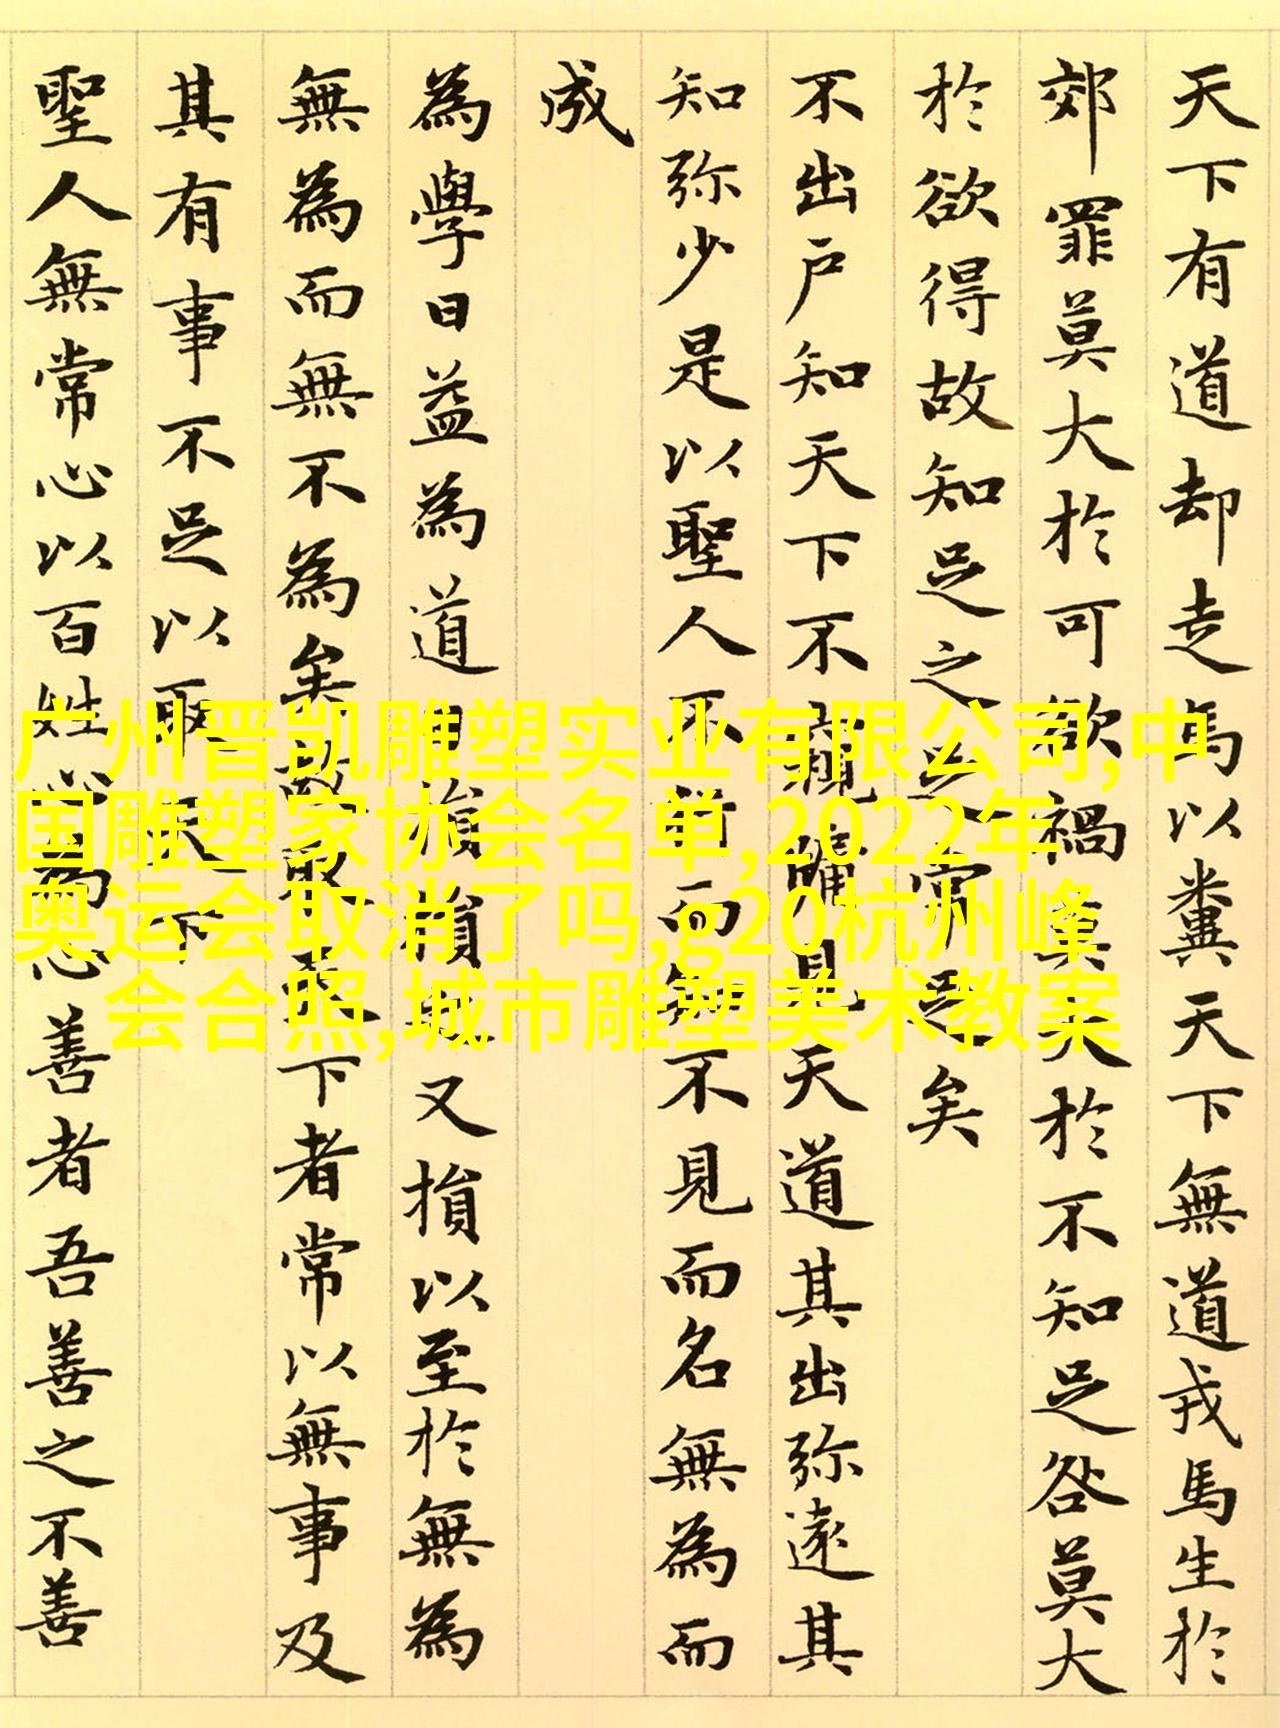 天下有道却走馬以糞天下無道戎馬生於
郊罪莫大於可欲禍莫大於不知足咎莫大
於欲得故知足之足常足矣
不出戶知天下不窺牖見天道其出弥遠其
知弥少是以聖人不行而不見而名無為而
成
為學日益為道日損損之又損以至於無為
無為而無不為矣故取天下者常以無事及
其有事不足以取天下
聖人無常心以百姓心為心善者吾善之不善
广州晋凯雕塑实业有限公司,中
国雕塑家协会名单,2022年
奥运会取消了吗,g20杭州峰
会合照,城市雕塑美术教案